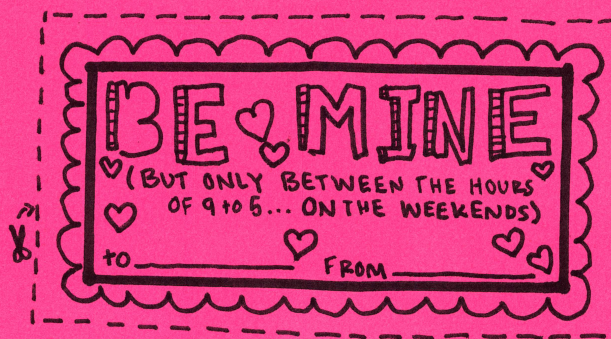 BE MINE
(BUT ONLY BETWEEN THE HOURS
OF 9 to 5... ON THE WEEKENDS)
to FROM